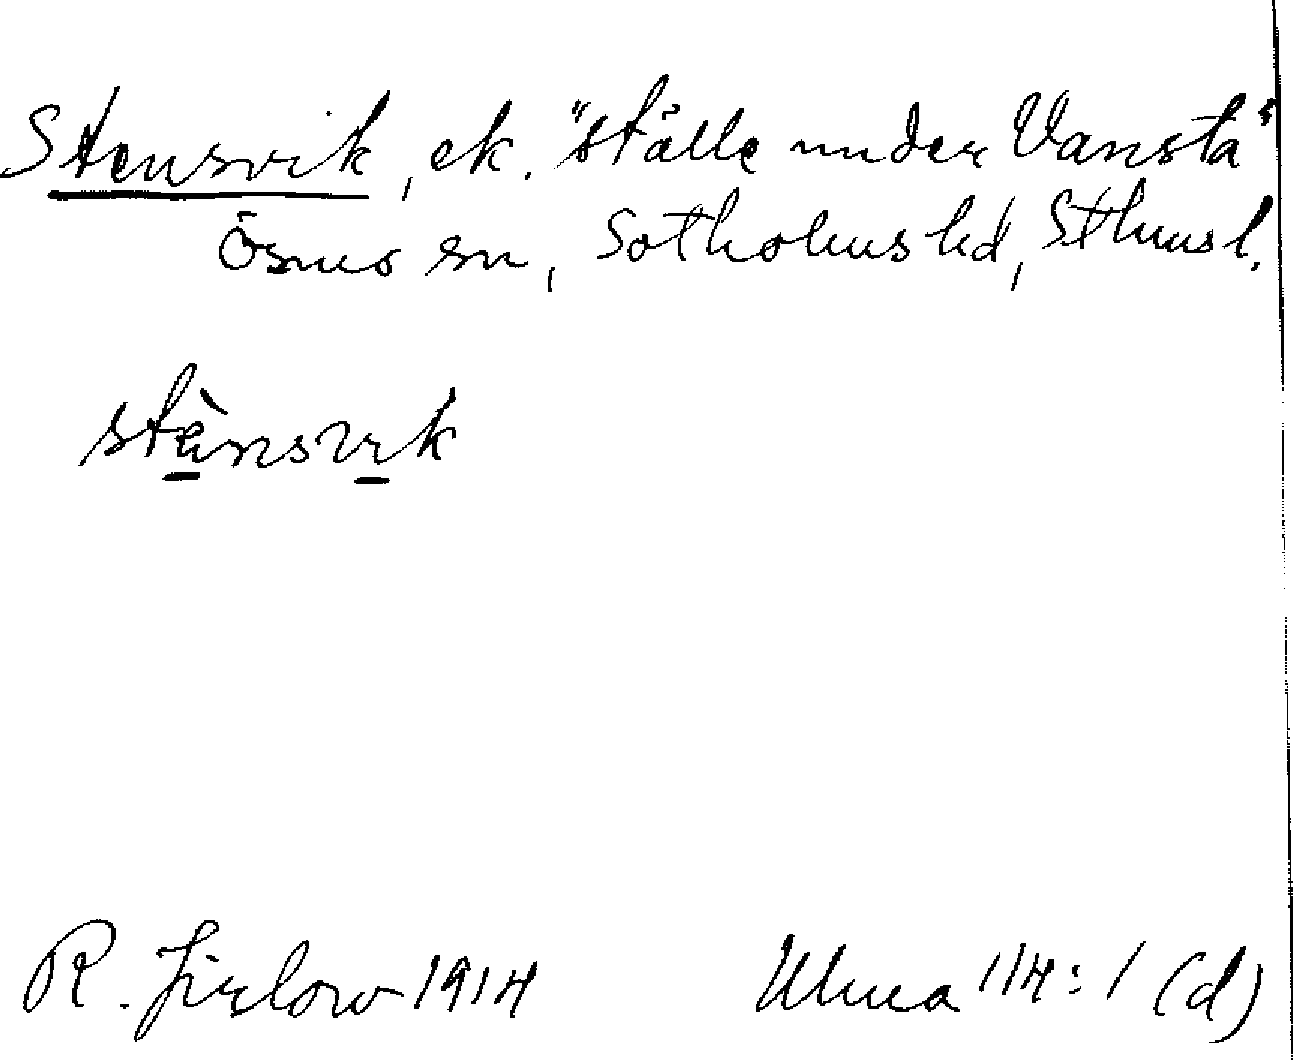 Stensvik, ek. "ställe under Vansta"
Ösmo sn, Sotholms hd, Sthmsl.
stènsvik
R. Jirlow 1914
Ulma 114:1 (d)